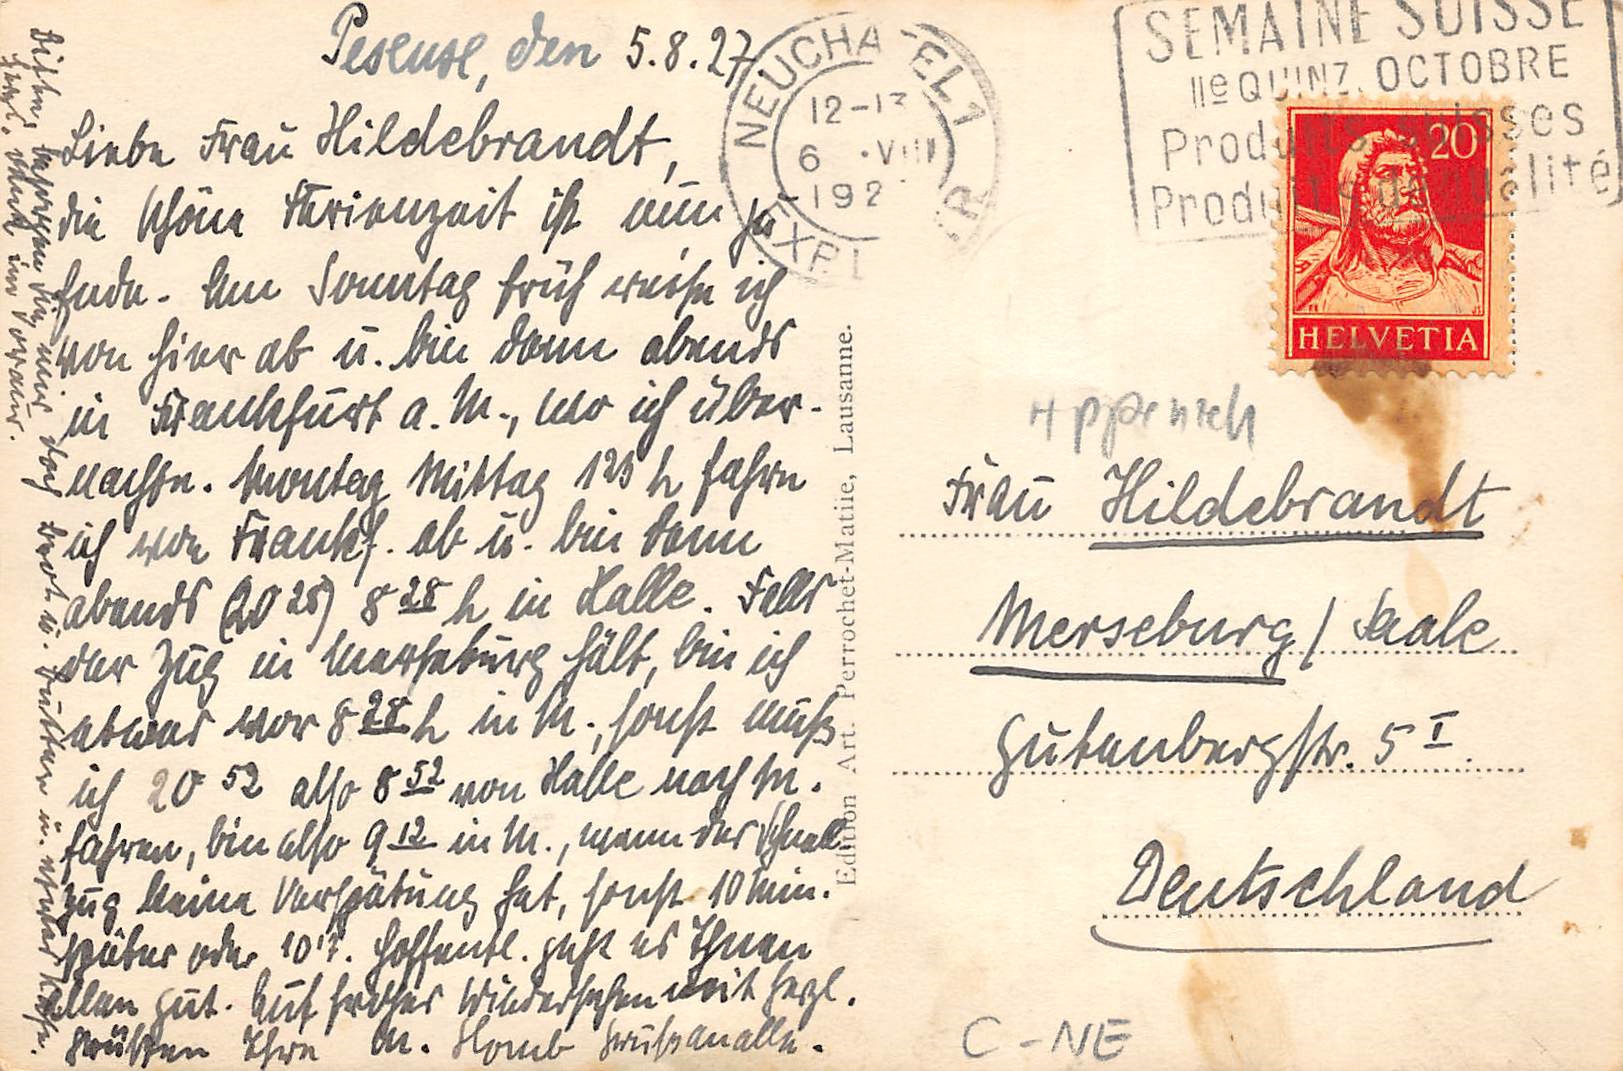 Peseux, den 5.8.27
Liebe Frau Hildebrandt,
die schöne Ferienzeit ist nun zu
Ende. Am Sonntag früh reise ich
von hier ab u. bin dann abends
in Frankfurt a. M., wo ich über-
nachte. Montag Mittag 123 h fahre
ich von Frankf. ab u. bin dann
abends (20 28) 8 28 h in Halle. Falls
der Zug in Merseburg hält, bin ich
etwas vor 8 28 h in M., sonst muß
ich 20 52 also 8 52 von Halle nach M.
fahren, bin also 9 12 in M., wenn der Schnell
zug keine Verspätung hat, sonst 10 Min.
später oder 10 17. Hoffentl. geht es Ihnen
allen gut. Auf frohes Wiedersehen mit herzl.
Grüßen Ihre M. Gruß an alle.
Bitte, besorgen Sie mir doch Brot u. Butter u. etwas Käse.
Herzl. Dank im Voraus.
NEUCHATEL 1
12-13
6 .VIII
-192
EXP. L
SEMAINE SUISSE
IIe QUINZ. OCTOBRE
Produits suisses
Produits de qualité
20
HELVETIA
Edition Art. Perrochet-Matile, Lausanne.
Frau Hildebrandt
Merseburg / Saale
Gutenbergstr. 5 I.
Deutschland
C-NE